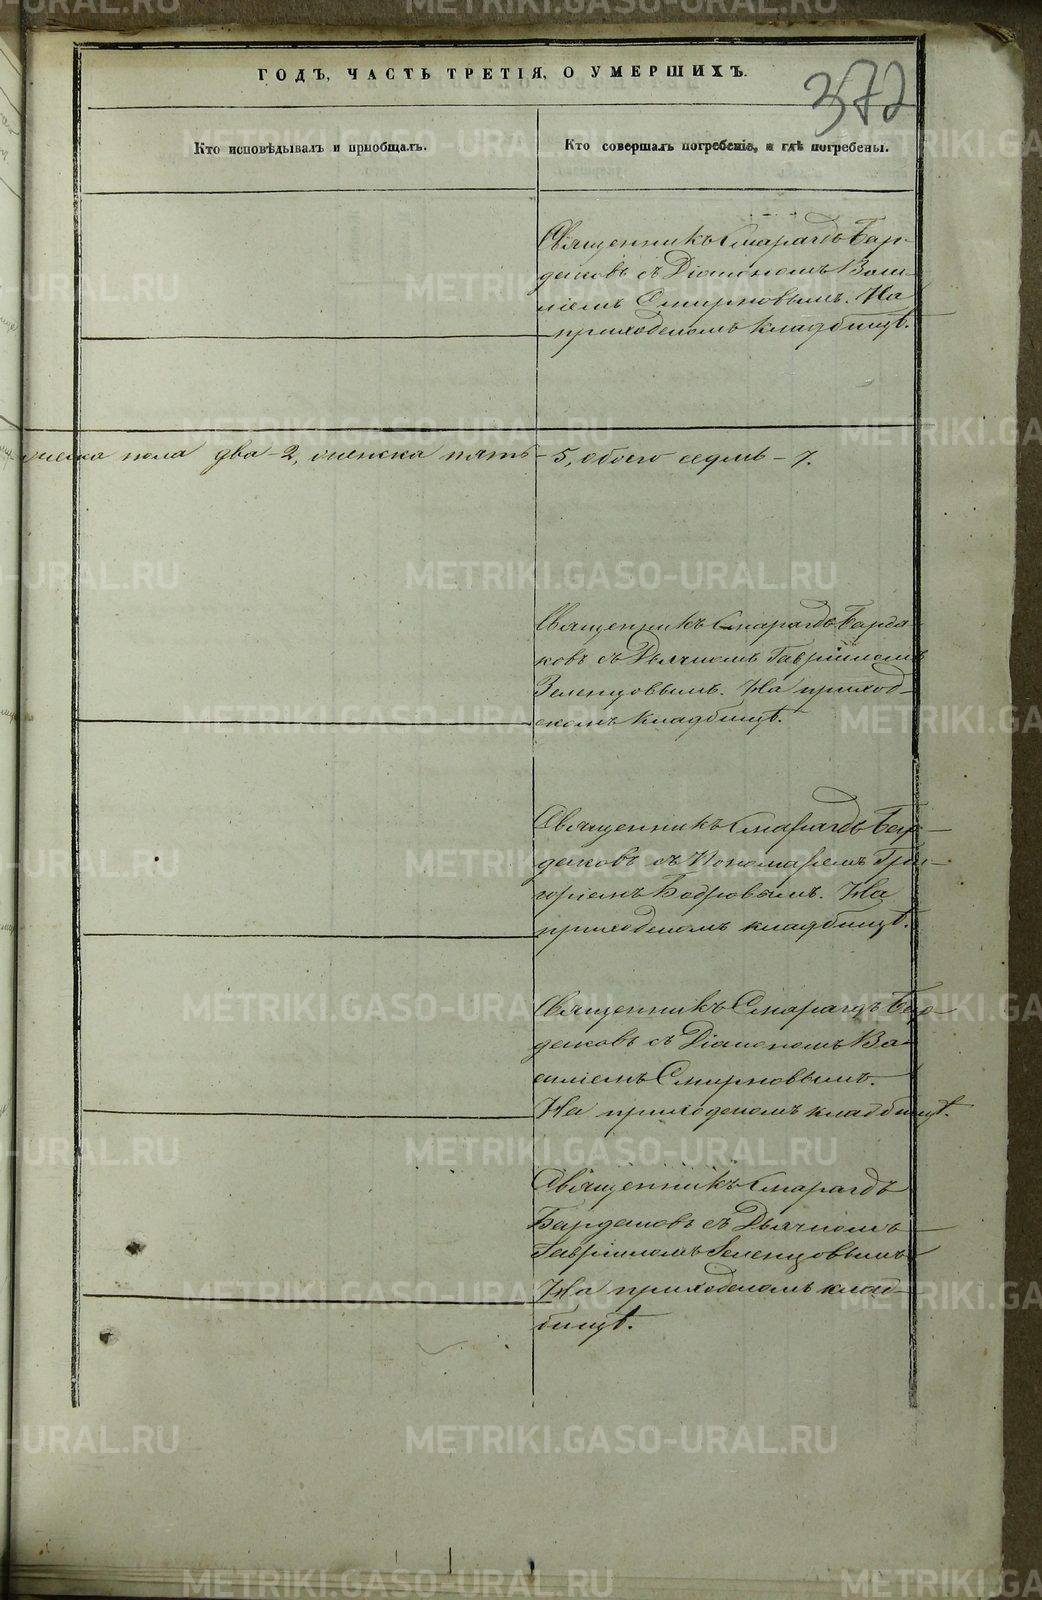 ГОДЪ, ЧАСТЬ ТРЕТІЯ, О УМЕРШИХЪ.
372
Кто исповѣдывалъ и пріобщалъ.
Кто совершалъ погребеніе, и гдѣ погребены.
Священникъ Смарагдъ Бар-
даковъ съ Діакономъ Васи-
ліемъ Смирновымъ. На
приходскомъ кладбищѣ.
пола два - 2, женска пять - 5, обоего седмь - 7.
Священникъ Смарагдъ Барда-
ковъ съ Дьячкомъ Гавріиломъ
Зеленцовымъ. На приход-
скомъ кладбищѣ.
Священникъ Смарагдъ Бар-
даковъ съ Пономаремъ Гри-
горіемъ Бобровымъ. На
приходскомъ кладбищѣ.
Священникъ Смарагдъ Бар-
даковъ съ Діакономъ Ва-
силіемъ Смирновымъ.
На приходскомъ кладбищѣ.
Священникъ Смарагдъ
Бардаковъ съ Дьячкомъ
Гавріиломъ Зеленцовымъ
На приходскомъ клад-
бищѣ.
METRIKI.GASO-URAL.RU